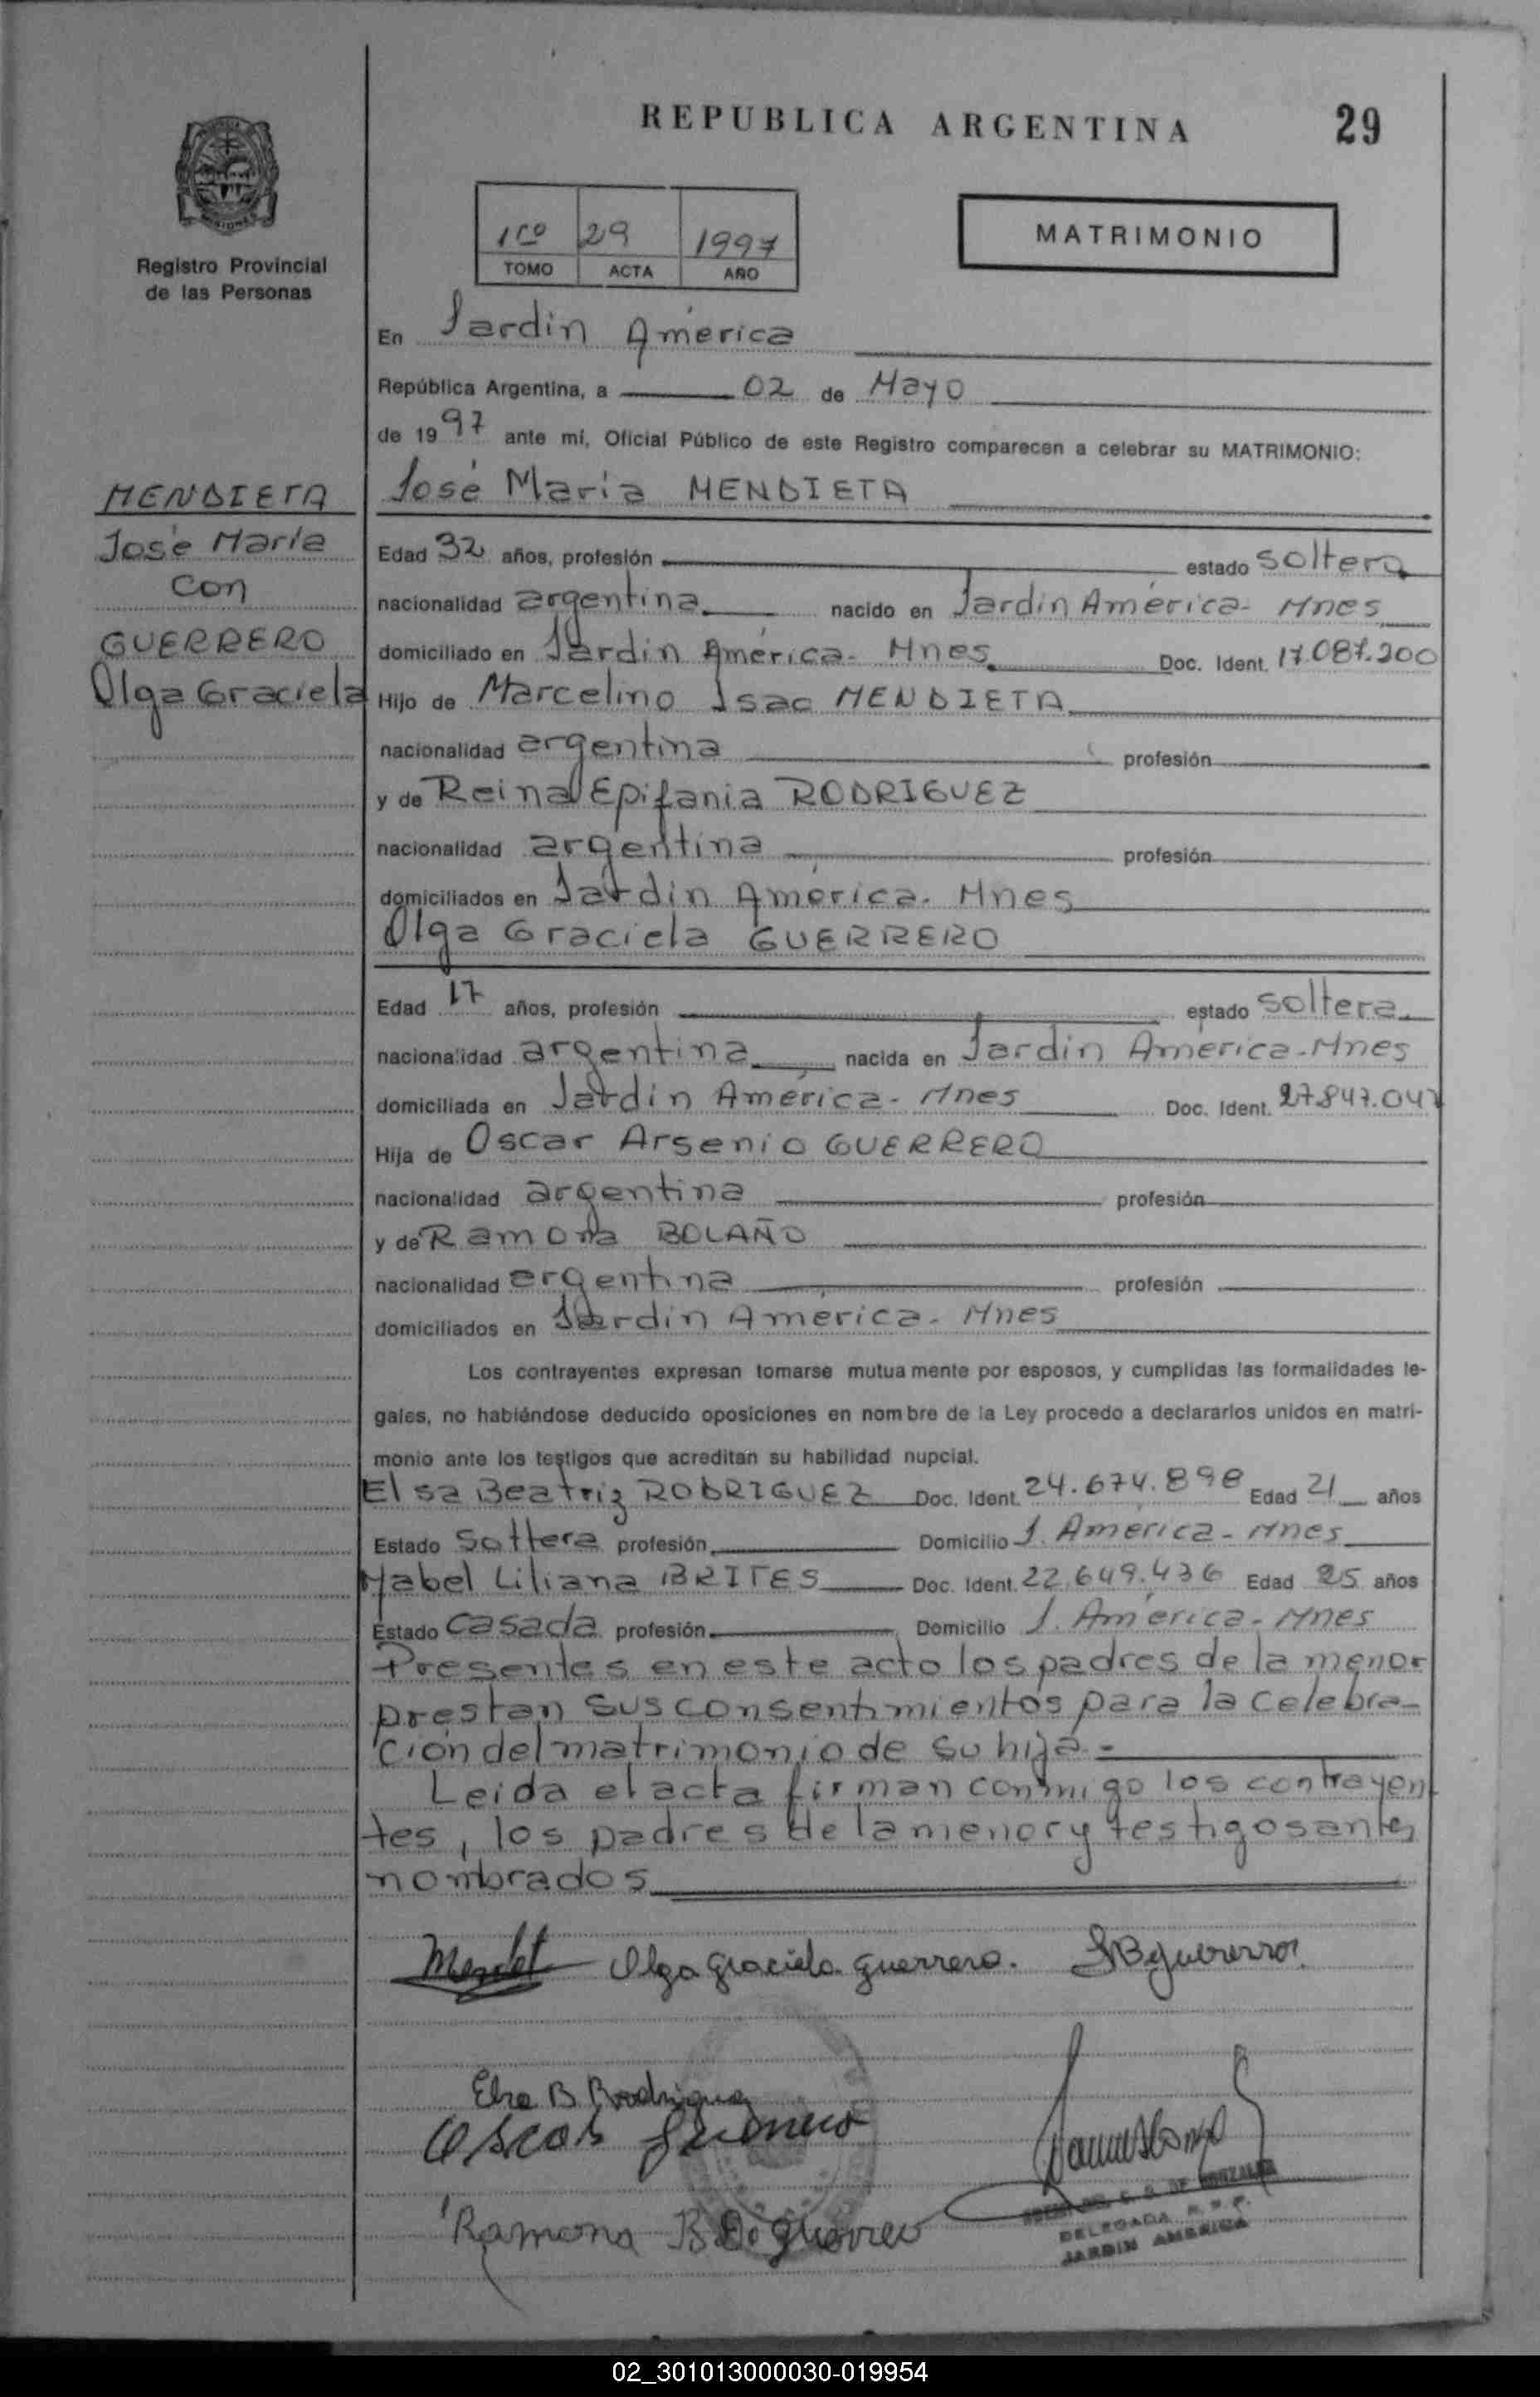 REPUBLICA ARGENTINA
29
Registro Provincial
de las Personas
1ro 29 1997
TOMO ACTA AÑO
MATRIMONIO
En Jardin América
República Argentina, a 02 de Mayo
de 1997 ante mí, Oficial Público de este Registro comparecen a celebrar su MATRIMONIO:
MENDIETA
José María
con
GUERRERO
Olga Graciela
José María MENDIETA
Edad 32 años, profesión estado soltero
nacionalidad argentina nacido en Jardin América- Mnes
domiciliado en Jardin América- Mnes Doc. Ident. 17.087.200
Hijo de Marcelino Isac MENDIETA
nacionalidad argentina profesión
y de Reina Epifania RODRIGUEZ
nacionalidad argentina profesión
domiciliados en Jardin América- Mnes
Olga Graciela GUERRERO
Edad 17 años, profesión estado soltera
nacionalidad argentina nacida en Jardin América-Mnes
domiciliada en Jardin América- Mnes Doc. Ident. 27.847.047
Hija de Oscar Arsenio GUERRERO
nacionalidad argentina profesión
y de Ramona BOLAÑO
nacionalidad argentina profesión
domiciliados en Jardin América- Mnes
Los contrayentes expresan tomarse mutuamente por esposos, y cumplidas las formalidades le-
gales, no habiéndose deducido oposiciones en nombre de la Ley procedo a declararlos unidos en matri-
monio ante los testigos que acreditan su habilidad nupcial.
Elsa Beatriz RODRIGUEZ Doc. Ident. 24.674.898 Edad 21 años
Estado Soltera profesión Domicilio J. América- Mnes
Mabel Liliana BRITES Doc. Ident. 22.649.436 Edad 25 años
Estado Casada profesión Domicilio J. América- Mnes
Presentes en este acto los padres de la menor
prestan sus consentimientos para la celebra-
ción del matrimonio de su hija.-
Leida el acta firman conmigo los contrayen
tes, los padres de la menor y testigos antes
nombrados
Olga Graciela Guerrero.
Elsa B Rodriguez
Oscar Guerrero
Ramona B De Guerrero
DE GONZALEZ
DELEGADA R. P. P.
JARDIN AMERICA
02_301013000030-019954